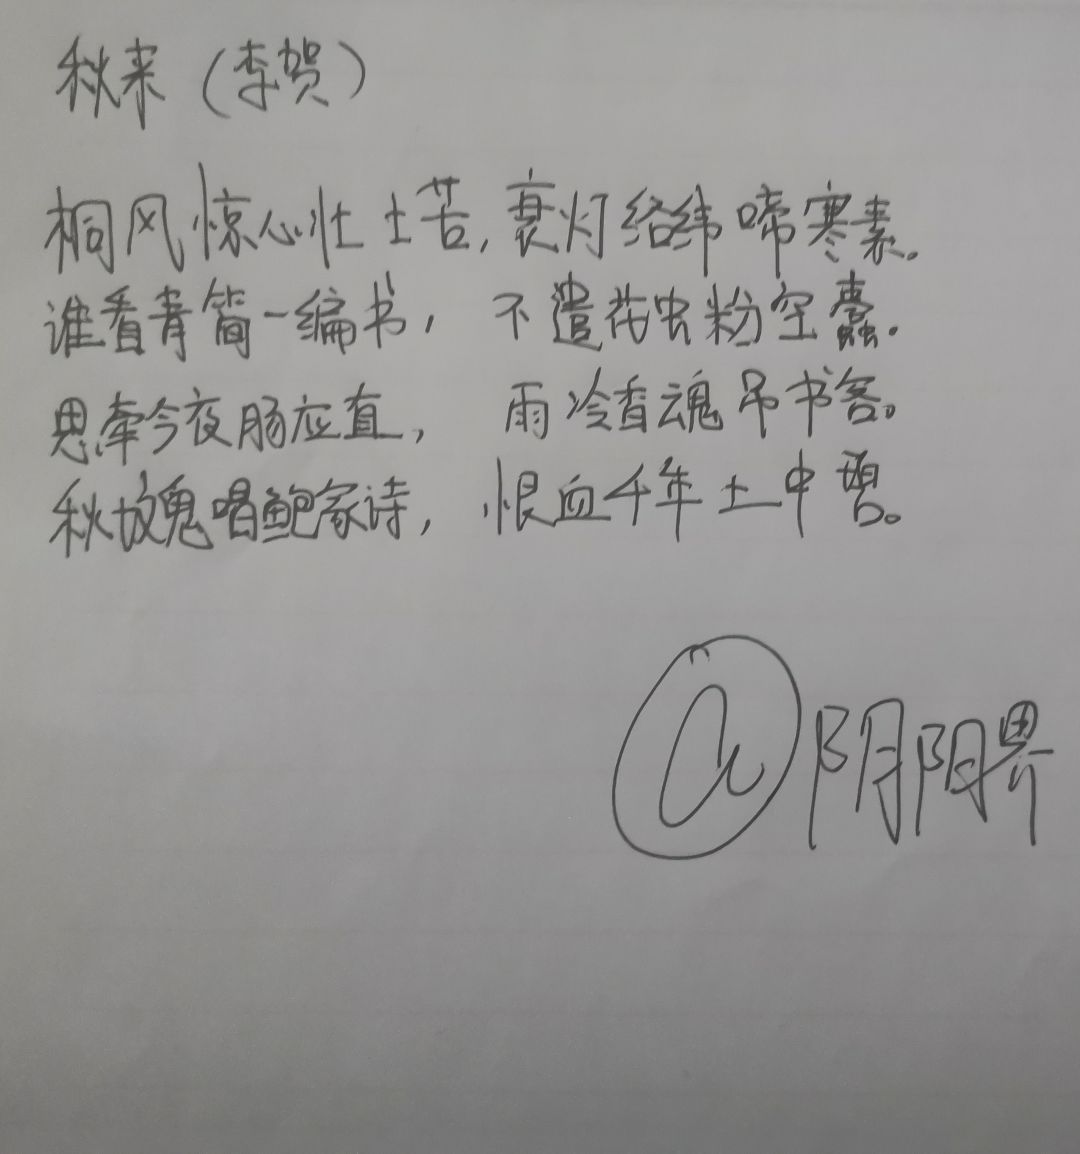 秋来（李贺）
桐风惊心壮士苦，衰灯络纬啼寒素。
谁看青简一编书，不遣花虫粉空蠹。
思牵今夜肠应直，雨冷香魂吊书客。
秋坟鬼唱鲍家诗，恨血千年土中碧。
@阴阳界